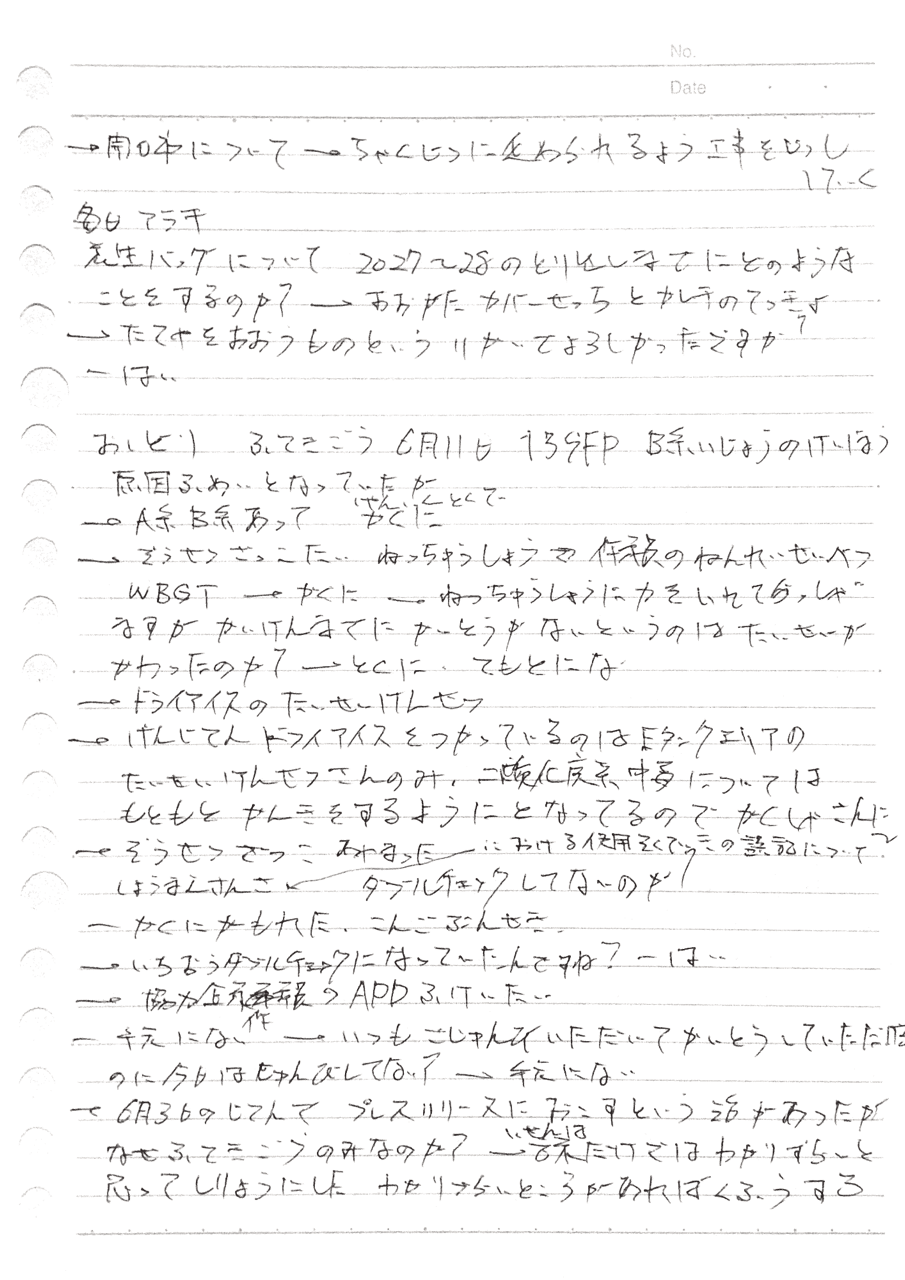 No.
Date
→ について → ちゃくじつに められるよう工事をじっし
していく
毎日 アラキ
バッグについて 2027〜28のとり出しまでにどのような
ことをするのか? → おおがた カバーせっち とガレキのてっきょ
→ たてやをおおうものという りかいでよろしかったですか?
ーはい
おしどり ふてきごう 6月11日 B系いじょうのけいほう
原因ふめいとなっていたが
→ A系B系あって かくに
→ ぞうせつざっこたい ねっちゅうしょう 作業員のねんれいせいべつ
WBGT → かくに → ねっちゅうしょうに力をいれておっしゃ
ますが かいけんまでに かいとうがないというのは たいせいが
かわったのか? → とくに てもとにな
→ ドライアイスの たいせいけんせつ
→ げんじてん ドライアイスをつかっているのはEタンクエリアの
たいせいけんせつさんのみ、二酸化炭素中毒については
もともと かんきをするようにとなってるので かくしゃさんに
→ ぞうせつざっこ における使用 の誤記について?
ダブルチェックしてないのか
ー かくにんがもれた、こんごぶんせき
→ いちおうダブルチェックになっていたんですね? ーはい
→ 協力企業作業員のAPDふけいたい
- 手元にない → いつもごじゅんびいただいてかいとうしていただ
のに今日はじゅんびしてない? → 手元にない
→ 6月3日のじてんで プレスリリースにおこすという話があったが
なぜふてきごうのみなのか? → だけではわかりずらいと
思ってしりょうにした わかりづらいところがあればくふうする